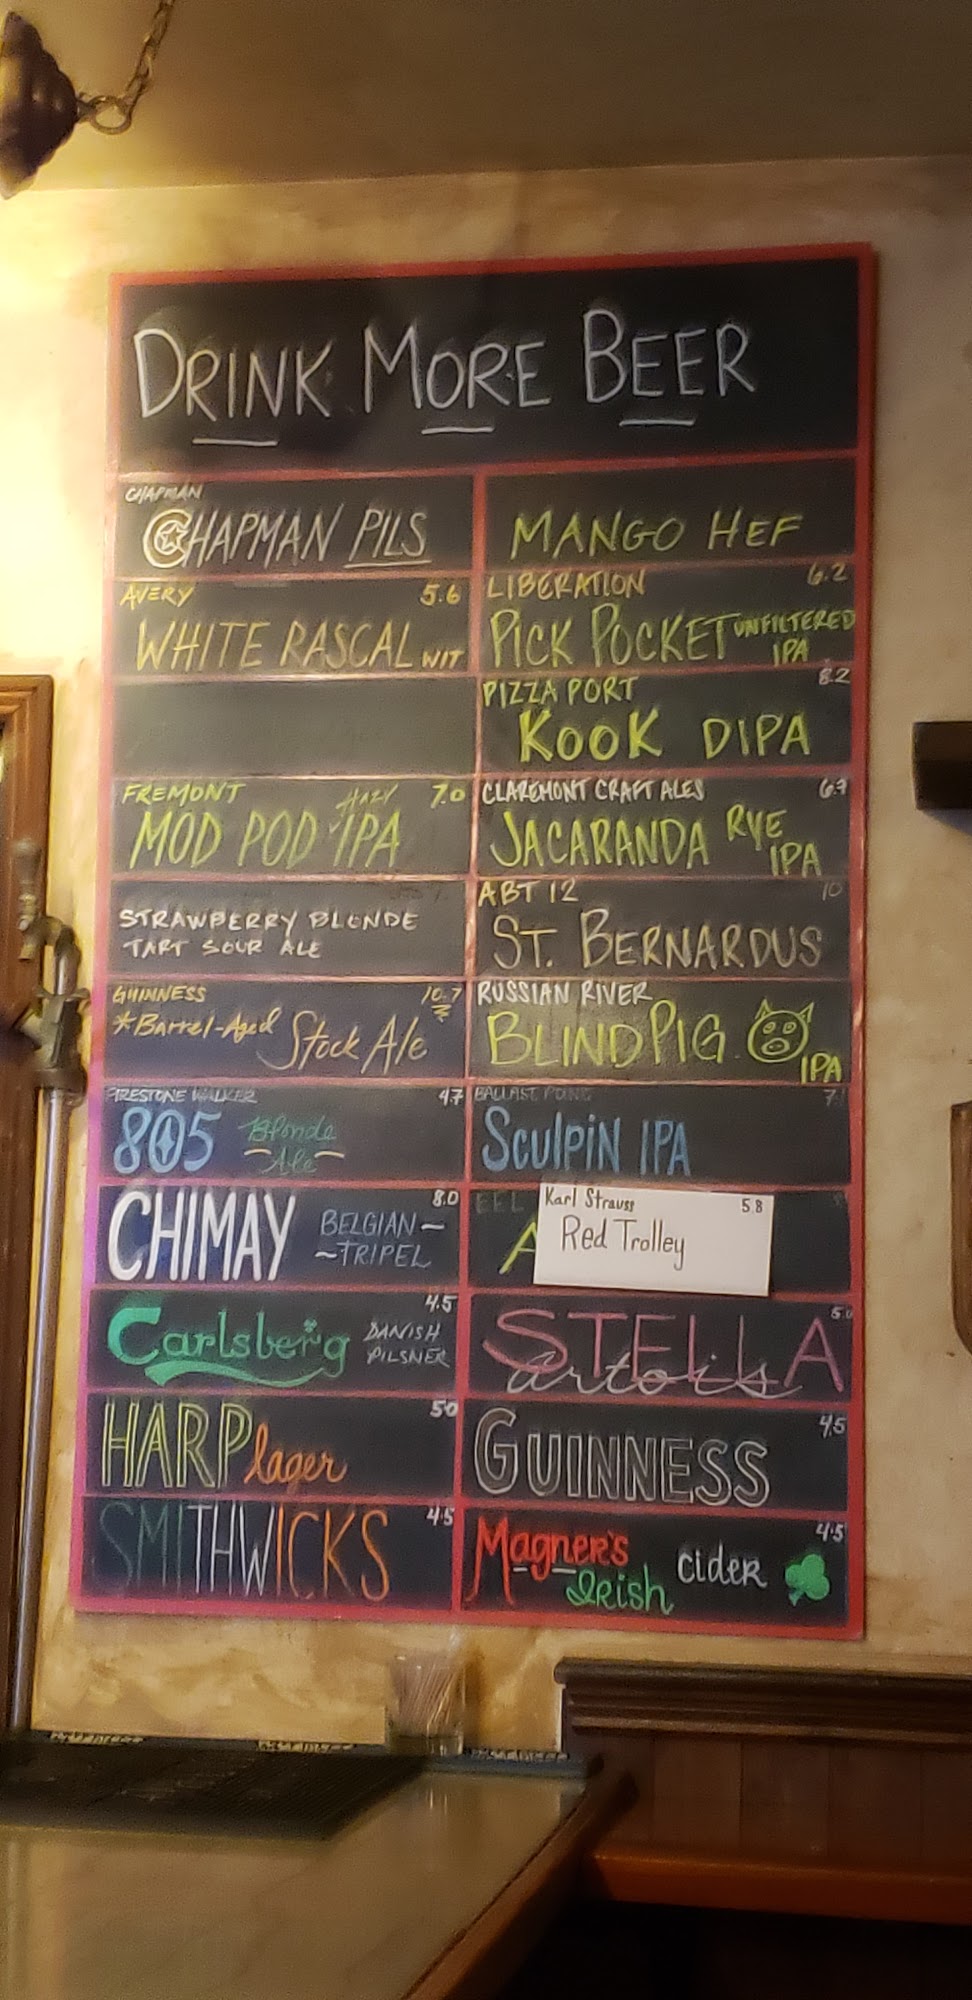 DRINK MORE BEER
CHAPMAN
CHAPMAN PILS
AVERY 5.6
WHITE RASCAL WIT
FREMONT 7.0
MOD POD HAZY IPA
STRAWBERRY BLONDE
TART SOUR ALE
GUINNESS 10.7
*Barrel-Aged Stock Ale
FIRESTONE WALKER 4.7
805 Blonde
Ale
CHIMAY 8.0
BELGIAN
TRIPEL
Carlsberg 4.5
DANISH
PILSNER
HARP lager 5.0
SMITHWICKS 4.5
MANGO HEF
LIBERATION 6.2
PICK POCKET UNFILTERED
IPA
PIZZA PORT 8.2
KOOK DIPA
CLAREMONT CRAFT ALES
JACARANDA RYE
IPA
ABT 12 10
ST. BERNARDUS
RUSSIAN RIVER
BLIND PIG IPA
BALLAST POINT
SCULPIN IPA
EEL
A
Karl Strauss 5.8
Red Trolley
STELLA 5.0
artois
GUINNESS 4.5
Magner's 4.5
Irish cider